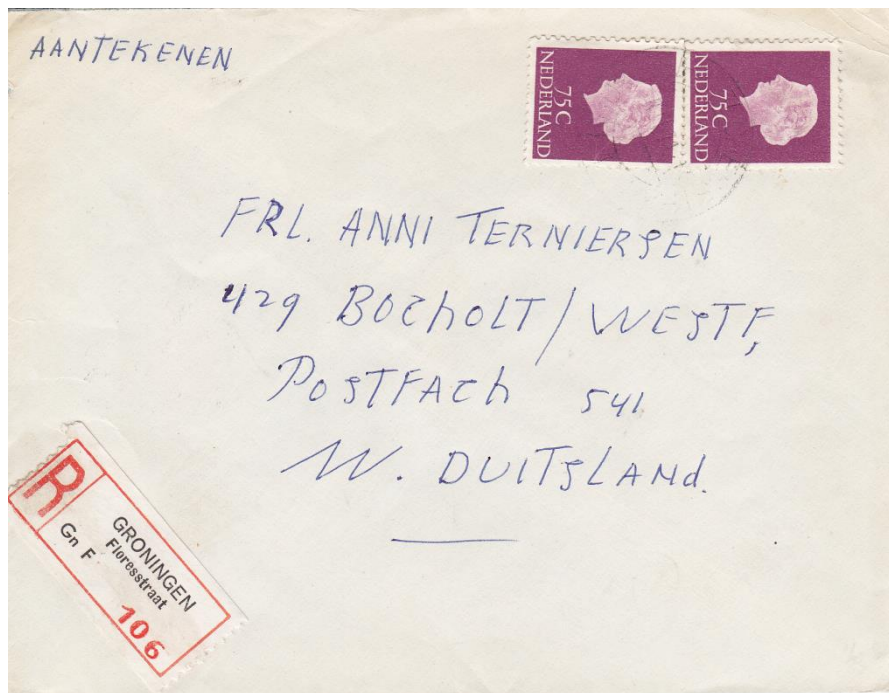 AANTEKENEN
75C
NEDERLAND
75C
NEDERLAND
FRL. ANNI TERNIERSEN
429 BOCHOLT/WESTF,
POSTFACH 541
W. DUITSLAND.
R
GRONINGEN
Floresstraat
Gn F
106